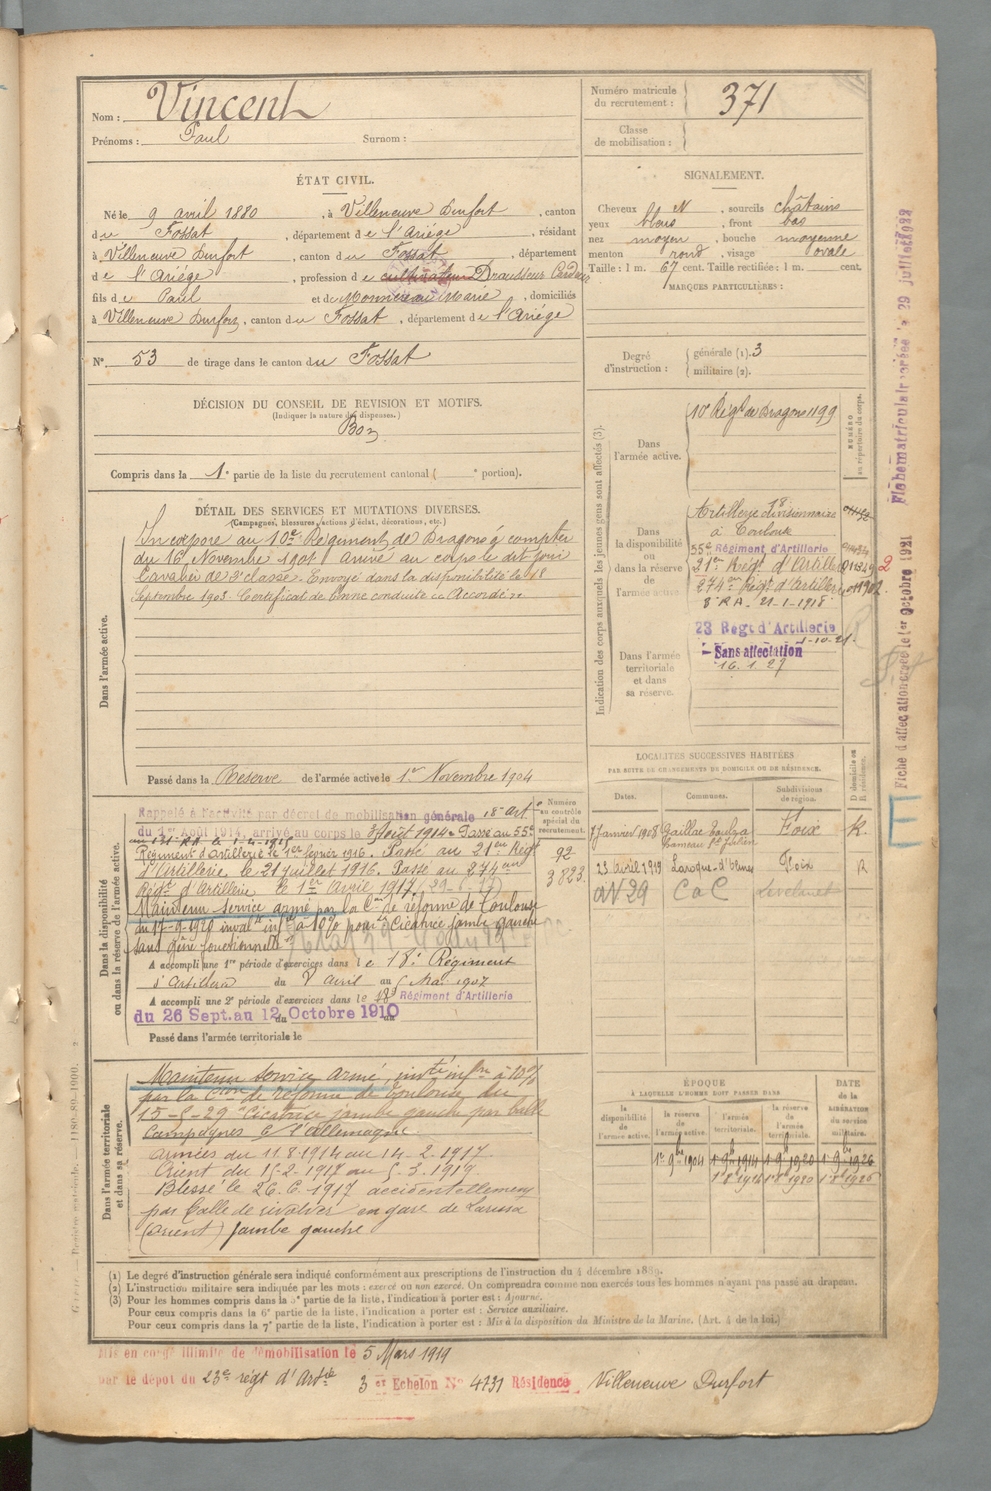 Nom : Vincent
Prénoms : Paul Surnom :
Numéro matricule du recrutement : 371
Classe de mobilisation :
ÉTAT CIVIL.
Né le 9 avril 1880, à Villeneuve Durfort, canton
du Fossat, département de l'Ariège, résidant
à Villeneuve Durfort, canton du Fossat, département
de l'Ariège, profession de cultivateur
fils de Paul et de Marie, domiciliés
à Villeneuve Durfort, canton du Fossat, département de l'Ariège
N° 53 de tirage dans le canton du Fossat
SIGNALEMENT.
Cheveux N, sourcils châtains
yeux bleus, front bas
nez moyen, bouche moyenne
menton rond, visage ovale
Taille : 1 m. 67 cent. Taille rectifiée : 1 m. cent.
MARQUES PARTICULIÈRES :
Degré d'instruction : générale (1). 3
militaire (2).
DÉCISION DU CONSEIL DE REVISION ET MOTIFS.
(Indiquer la nature des dispenses.)
Bon
Compris dans la 1e partie de la liste du recrutement cantonal ( e portion).
DÉTAIL DES SERVICES ET MUTATIONS DIVERSES.
(Campagnes, blessures, actions d'éclat, décorations, etc.)
Dans l'armée active.
Incorporé au 10e Régiment de Dragons à compter
du 16 Novembre 1901 arrivé au corps le dit jour
Cavalier de 2e classe. Envoyé dans la disponibilité le 18
Septembre 1903. Certificat de bonne conduite "Accordé".
Passé dans la Réserve de l'armée active le 1er Novembre 1904
Indication des corps auxquels les jeunes gens sont affectés (3).
NUMÉRO au répertoire du corps.
Dans l'armée active.
10e Régt de Dragons 1199
Dans la disponibilité ou dans la réserve de l'armée active
Artillerie divisionnaire 18
à Toulouse
55e Régiment d'Artillerie
21e Régt d'Artillerie
274e Régt d'Artillerie
8e R A. 21-1-1918
23 Régt d'Artillerie
1-10-21.
Sans affectation
16.1.27
Dans l'armée territoriale et dans sa réserve.
LOCALITÉS SUCCESSIVES HABITÉES
PAR SUITE DE CHANGEMENTS DE DOMICILE OU DE RÉSIDENCE.
Dates. Communes. Subdivisions de région. D domicile ou R résidence.
7 Janvier 1908 Gaillac Toulza hameau St Julien Foix R.
23 avril 1919 Laroque-d'Olmes Foix R
AV 29 CaC Lavelanet
Dans la disponibilité ou dans la réserve de l'armée active.
Numéro au contrôle spécial du recrutement.
92
3823.
Rappelé à l'activité par décret de mobilisation générale 18e art
du 1er Août 1914, arrivé au corps le août 1914. Passé au 55e
Régiment d'Artillerie le 1er février 1916. Passé au 21e Régt
d'Artillerie le 21 juillet 1916. Passé au 274e
Régt d'Artillerie le 1er Avril 1917
Maintenu service armé par la Con de réforme de Toulouse
du 17-9-1920 à 10% pour Cicatrice jambe gauche
sans gêne fonctionnelle
A accompli une 1re période d'exercices dans le 18e Régiment
d'Artillerie du avril au Mai 1907
A accompli une 2e période d'exercices dans le 18e Régiment d'Artillerie
du 26 Sept. au 12 Octobre 1910
Passé dans l'armée territoriale le
Dans l'armée territoriale et dans sa réserve.
Maintenu service armé, à 10%
par la Cion de réforme de Toulouse du
15-5-29 Cicatrice jambe gauche par balle
Campagnes c/ l'Allemagne
armées du 11.8.1914 au 14-2-1917.
Orient du 15-2-1917 au 5.3.1919.
Blessé le 26.6.1917 accidentellement
par balle de révolver en gare de Larissa
(Orient) jambe gauche
ÉPOQUE
À LAQUELLE L'HOMME DOIT PASSER DANS
la disponibilité de l'armée active. la réserve de l'armée active. l'armée territoriale. la réserve de l'armée territoriale. DATE de la LIBÉRATION du service militaire.
1er 9bre 1904 1er 9bre 1914 1er 9bre 1920 1er 9bre 1926
(1) Le degré d'instruction générale sera indiqué conformément aux prescriptions de l'instruction du 4 décembre 1889.
(2) L'instruction militaire sera indiquée par les mots : exercé ou non exercé. On comprendra comme non exercés tous les hommes n'ayant pas passé au drapeau.
(3) Pour les hommes compris dans la 5e partie de la liste, l'indication à porter est : Ajourné.
Pour ceux compris dans la 6e partie de la liste, l'indication à porter est : Service auxiliaire.
Pour ceux compris dans la 7e partie de la liste, l'indication à porter est : Mis à la disposition du Ministre de la Marine. (Art. 4 de la loi.)
Mis en congé illimité de démobilisation le 5 Mars 1919
par le dépôt du 23e régt d'Artie 3er Echelon N° 4731 Résidence Villeneuve Durfort
Fiche d'affectation créée le 1er octobre 1921
Fiche matriculaire créée le 29 juillet